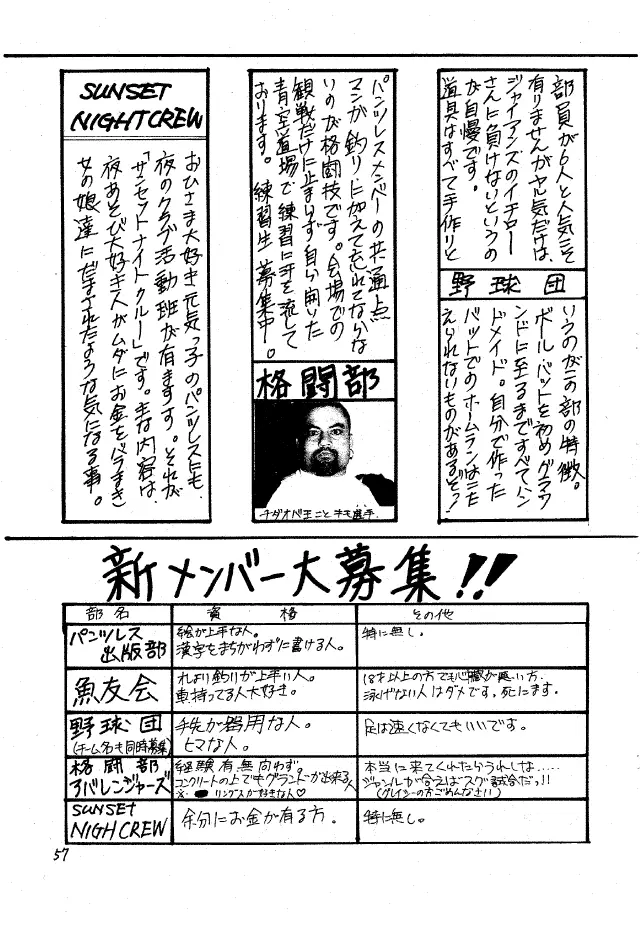 部員が6人と人気こそ
有りませんがヤル気だけは、
ジャイアンズのイチロー
さんに負けないというの
が自慢です。
道具はすべて手作りと
野球団
いうのがこの部の特徴。
ボール、バットを初めグラウ
ンドに至るまですべてハン
ドメイド。自分で作った
バットでのホームランはこた
えられないものがあるぞっ!
パンツレスメンバーの共通点
マンが、釣りに加えて忘れてならな
いのが格闘技です。会場での
観戦だけに止まらず自ら開いた
青空道場で練習に汗を流して
おります。練習生募集中。
格闘部
チダオベ王ことキモ選手
SUNSET
NIGHTCREW
おひさま大好き元気っ子のパンツレスにも
夜のクラブ活動班が有ります。それが
「サンセットナイトクルー」です。主な内容は、
夜あそび大好き人がムダにお金をバラまき
女の娘達にだまされたような気になる事。
新メンバー大募集!!
部名 資格 その他
パンツレス
出版部
絵が上手な人。
漢字をまちがわずに書ける人。
特に無し。
魚友会
れより釣りが上手い人。
車持ってる人大好き。
18才以上の方でも心臓が悪い方、
泳げない人はダメです。死にます。
野球団
(チーム名も同時募集)
手先が器用な人。
ヒマな人。
足は速くなくてもいいです。
格闘部
アバレンジャーズ
経験有無問わず。
コンクリートの上でもグランドーが出来る人
※ リングスが好きな人♡
本当に来てくれたらうれしな.....
ジャンルが合えばスグ試合だっ!!
(グレイシーの方ごめんなさい)
SUNSET
NIGHCREW
余分にお金が有る方。
特に無し。
57